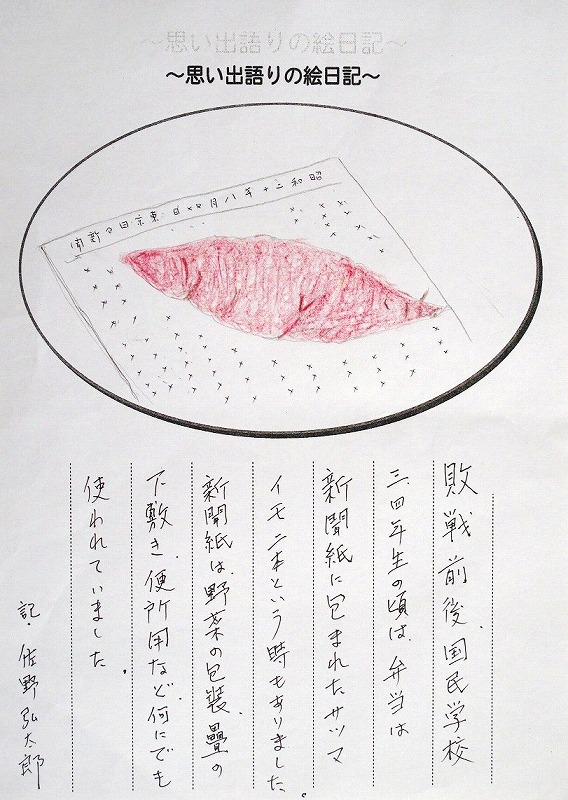 ～思い出語りの絵日記～
～思い出語りの絵日記～
昭和二十年八月××日 東京日々新聞
敗戦前後、国民学校
三、四年生の頃は、弁当は
新聞紙に包まれたサツマ
イモ二本という時もありました。
新聞紙は、野菜の包装、疊の
下敷き、便所用など、何にでも
使われていました。
記・佐野弘太郎